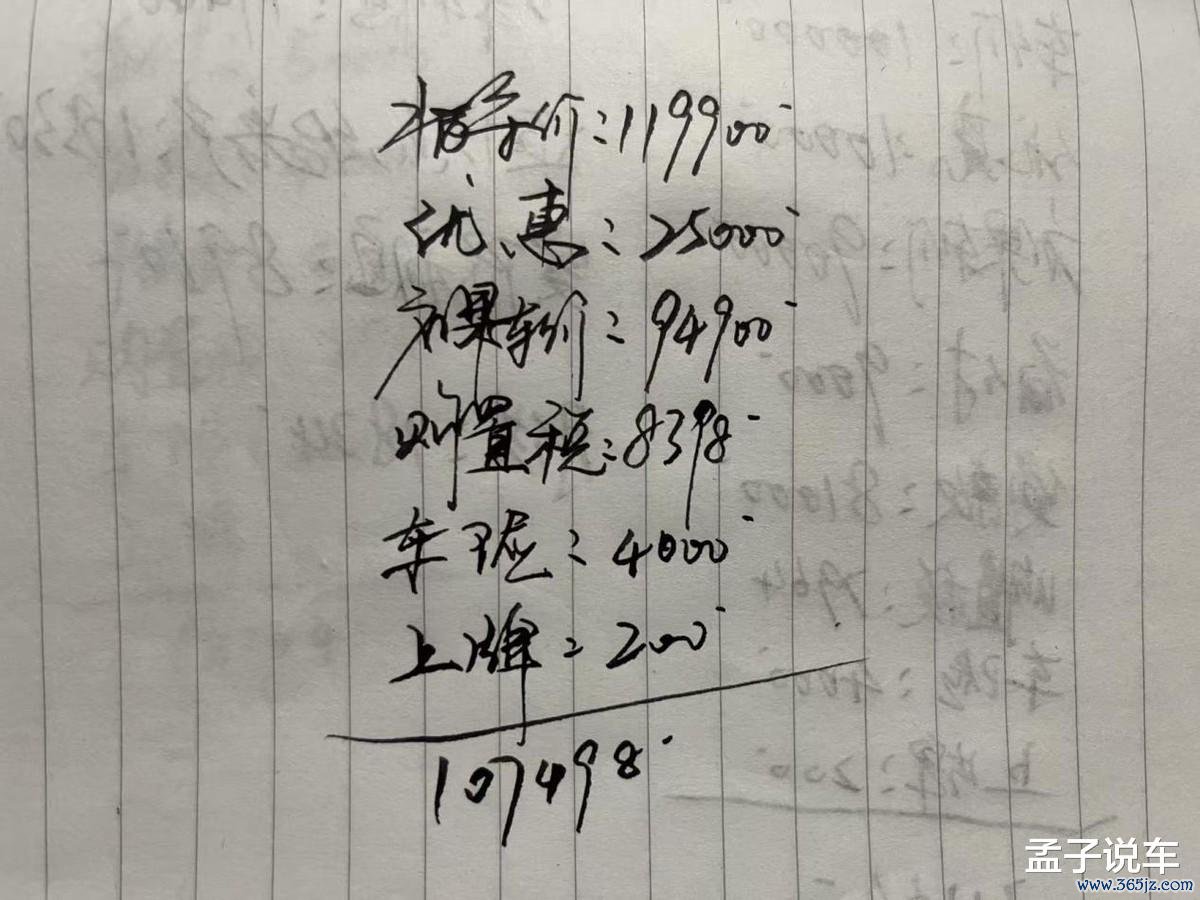 指导价:119900
优惠:25000
裸车价:94900
购置税:8398
车险:4000
上牌:200
107498
孟子说车
www.365jz.com